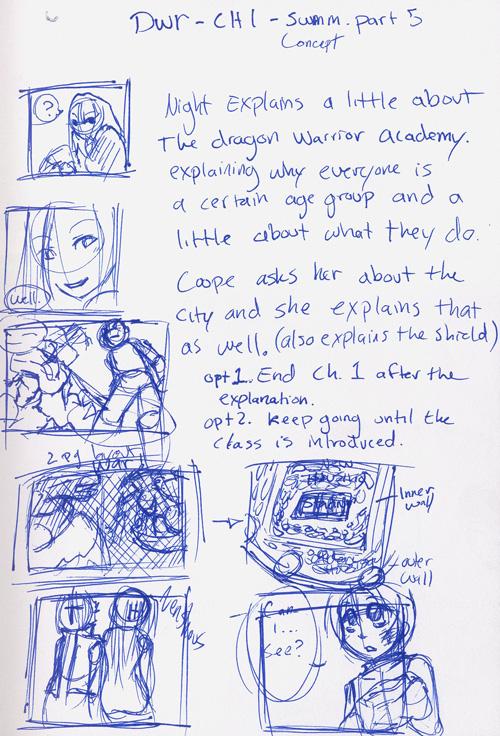 Dwr - CH 1 - Summ. part 5
Concept
?
Night Explains a little about
The dragon Warrior academy.
explaining why everyone is
a certain age group and a
little about what they do.
Coope asks her about the
city and she explains that
as well. (also explains the shield)
opt 1. End Ch. 1 after the
explanation.
opt 2. keep going until the
class is introduced.
well.
2. pg
War
Inner
wall
outer
wall
I...
see?